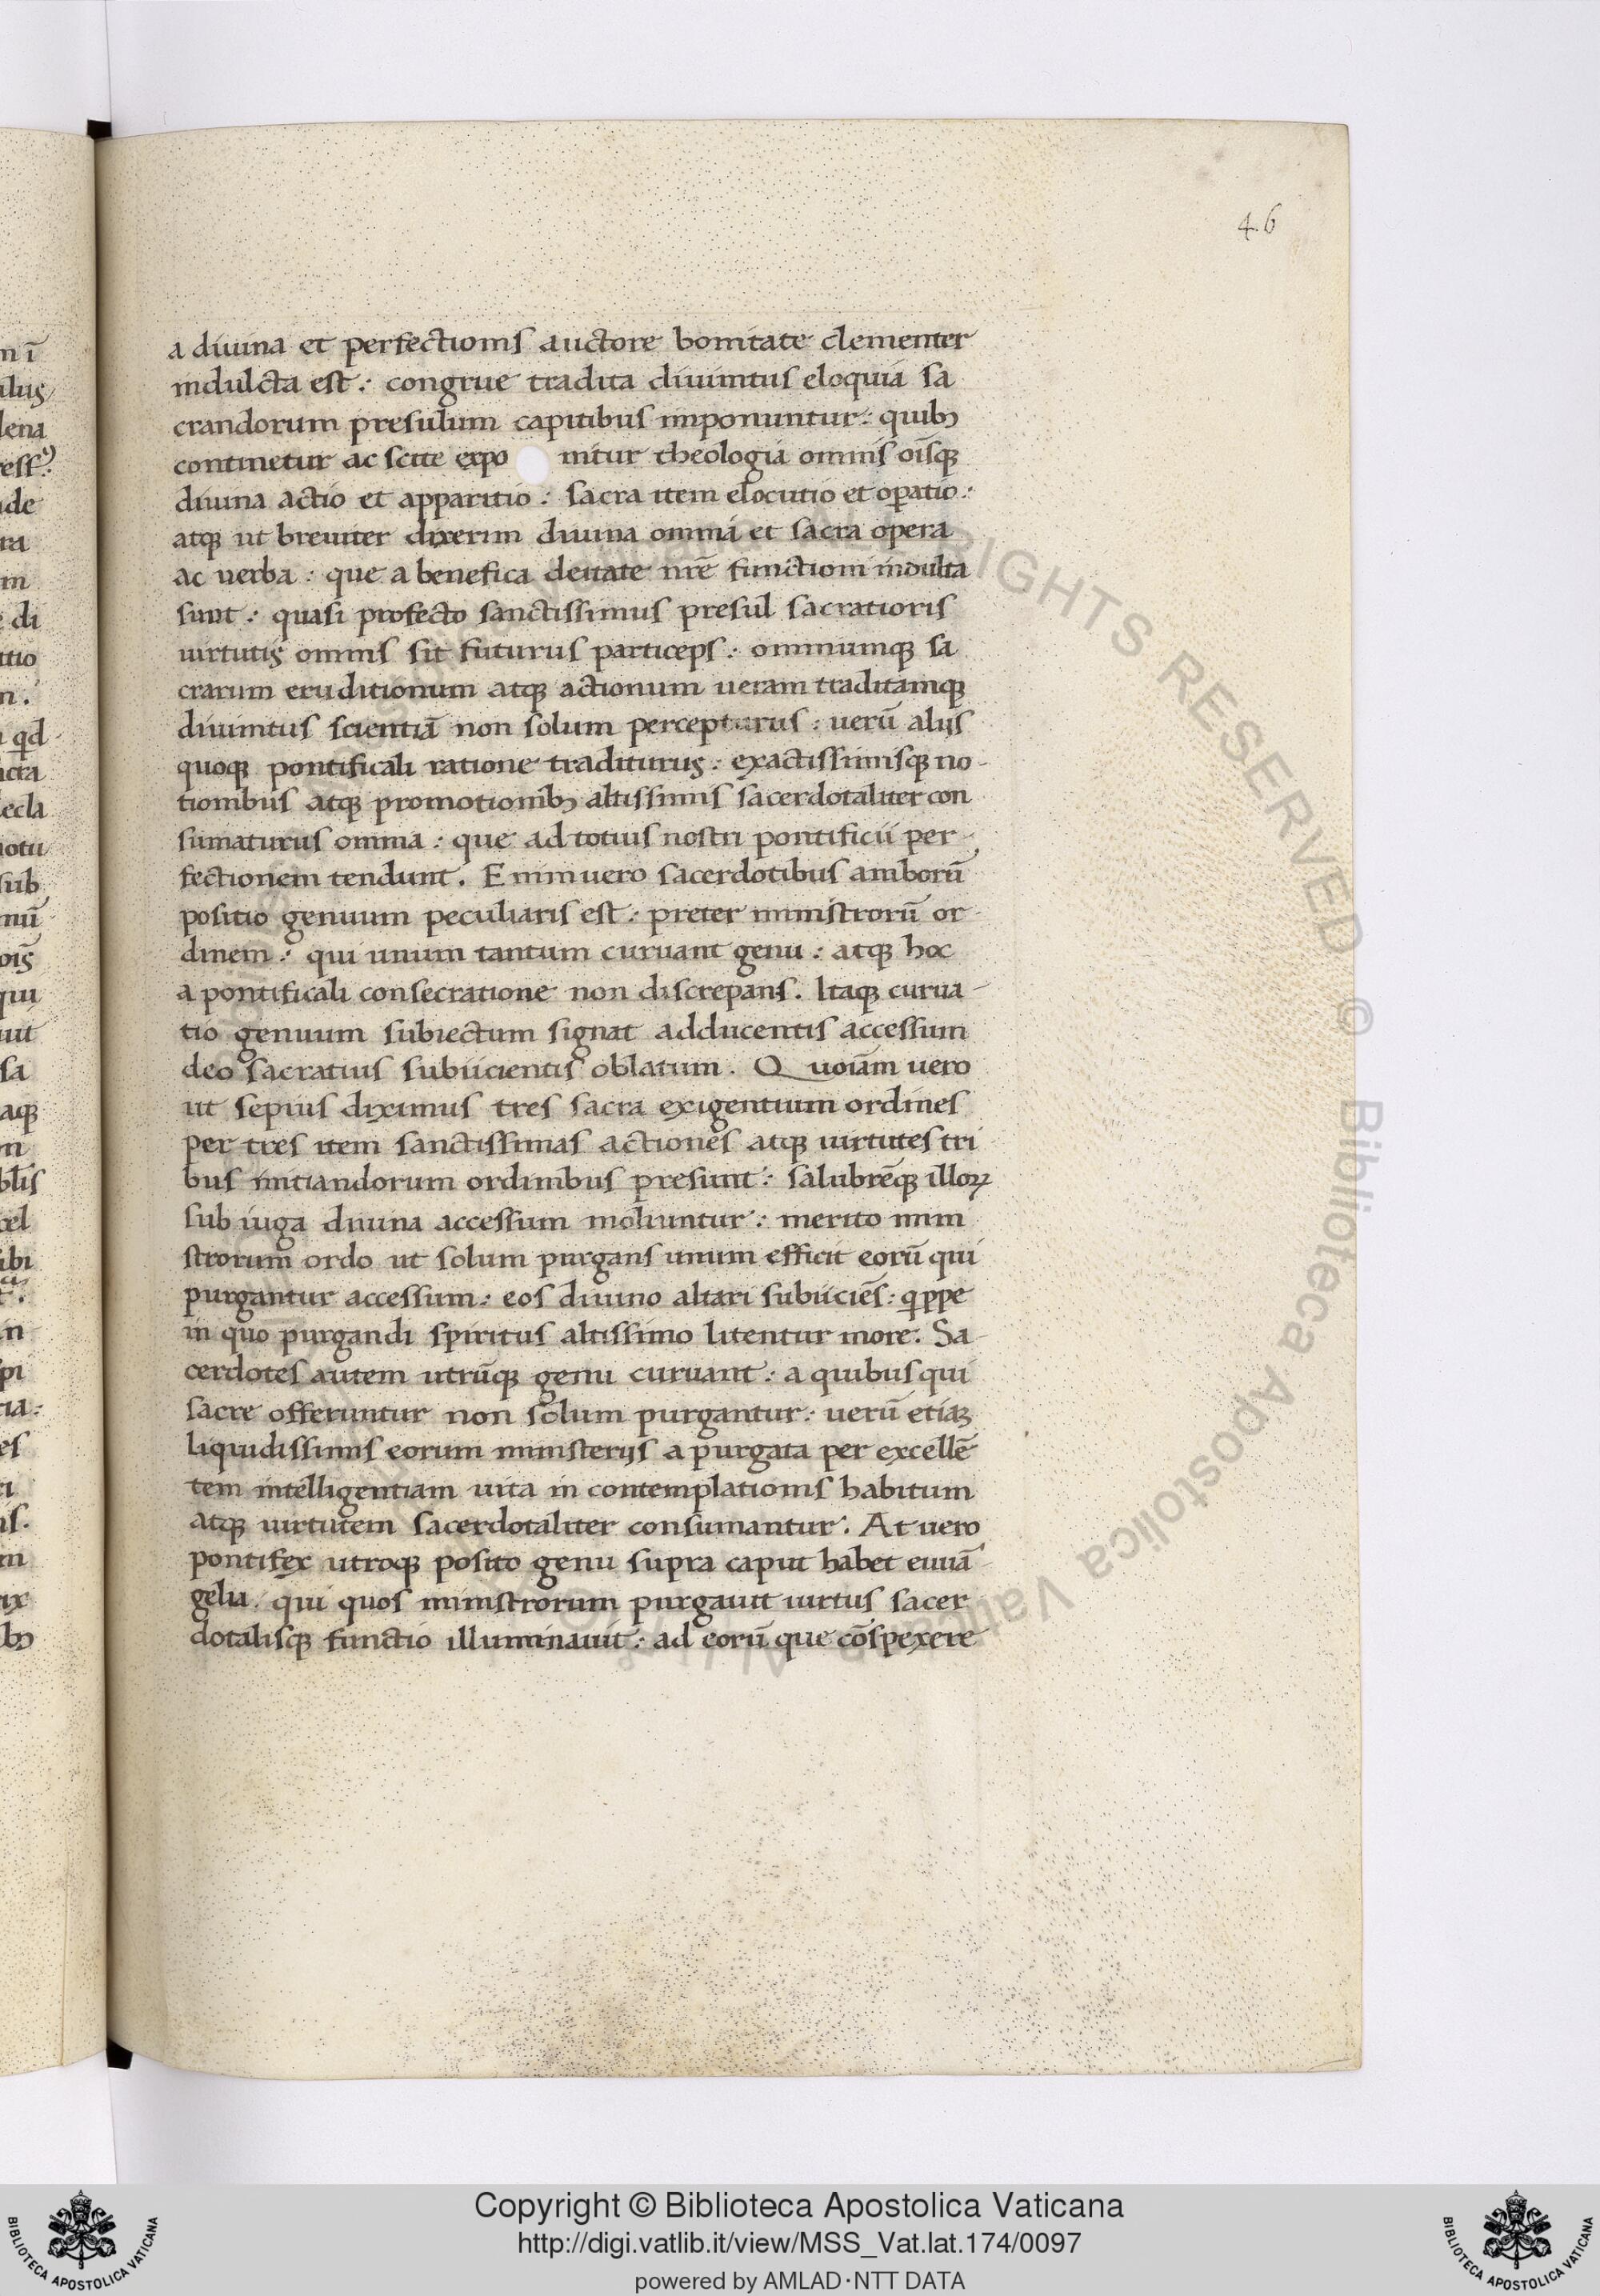 46
a diuina et perfectionis auctore bonitate clementer
indulcta est: congrue tradita diuinitus eloquia sa
crandorum presulum capitibus imponuntur: quibꝫ
continetur ac scite expo nitur theologia omnis oīsqꝫ
diuina actio et apparitio: sacra item elocutio et oꝑatio:
atqꝫ ut breuiter dixerim diuina omnia et sacra opera
ac uerba: que a benefica deitate nr̄e functioni indulta
sunt: quasi profecto sanctissimus presul sacratioris
uirtutis omnis sit futurus particeps: omniumqꝫ sa
crarum eruditionum atqꝫ actionum ueram traditamqꝫ
diuinitus scientiā non solum percepturus: uerū alijs
quoqꝫ pontificali ratione traditurus: exactissimisqꝫ no-
tionibus atqꝫ promotionibꝫ altissimis sacerdotaliter con
sumaturus omnia: que ad totius nostri pontificii per-
fectionem tendunt. Enimuero sacerdotibus amborū
positio genuum peculiaris est: preter ministrorū or-
dinem: qui unum tantum curuant genu: atqꝫ hoc
a pontificali consecratione non discrepans. Itaqꝫ curua-
tio genuum subiectum signat adducentis accessum
deo sacratius subiicientis oblatum. Quoīam uero
ut sepius diximus tres sacra exigentium ordines
per tres item sanctissimas actiones atqꝫ uirtutes tri
bus initiandorum ordinibus presunt: salubrēqꝫ illoꝝ
sub iuga diuina accessum moliuntur: merito mini
strorum ordo ut solum purgans unum efficit eorū qui
purgantur accessum: eos diuino altari subiiciēs: qͥppe
in quo purgandi spiritus altissimo litentur more. Sa-
cerdotes autem utrūqꝫ genu curuant: a quibus qui
sacre offeruntur non solum purgantur: uerū etiaꝫ
liquidissimis eorum ministerijs a purgata per excellē
tem intelligentiam uita in contemplationis habitum
atqꝫ uirtutem sacerdotaliter consumantur. At uero
pontifex utroqꝫ posito genu supra caput habet euuā-
gelia. qui quos ministrorum purgauit uirtus sacer
dotalisqꝫ functio illuminauit: ad eorū que cōspexere
Copyright © Biblioteca Apostolica Vaticana
http://digi.vatlib.it/view/MSS_Vat.lat.174/0097
powered by AMLAD·NTT DATA